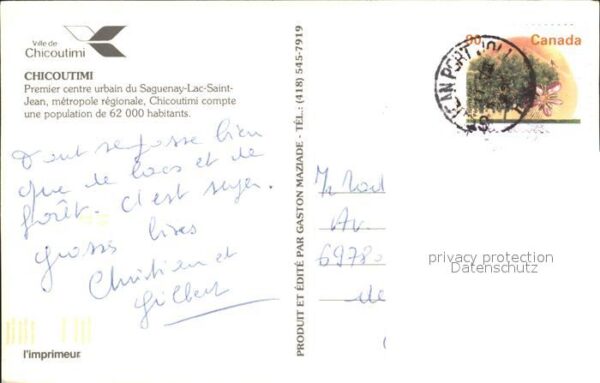 Ville de
Chicoutimi
CHICOUTIMI
Premier centre urbain du Saguenay-Lac-Saint-
Jean, métropole régionale, Chicoutimi compte
une population de 62 000 habitants.
Tout se passe bien
que de lacs et de
forêt. c'est super.
grosses bises
Christien et
Gilbert
l'imprimeur
PRODUIT ET ÉDITÉ PAR GASTON MAZIADE - TÉL.: (418) 545-7919
90
Canada
JEAN PORT JOLI
Av
69780
privacy protection
Datenschutz